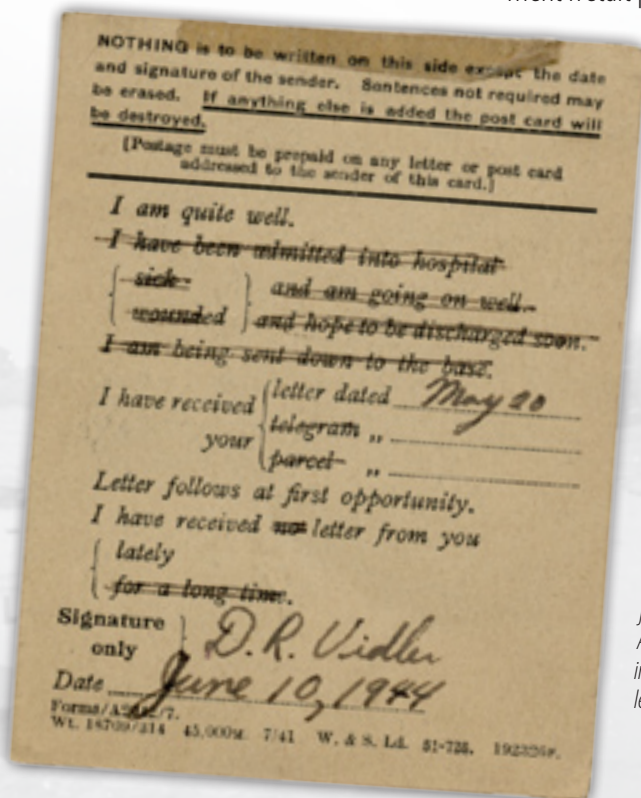 NOTHING is to be written on this side except the date
and signature of the sender. Sentences not required may
be erased. If anything else is added the post card will
be destroyed.
[Postage must be prepaid on any letter or post card
addressed to the sender of this card.]
I am quite well.
I have been admitted into hospital
sick and am going on well.
wounded and hope to be discharged soon.
I am being sent down to the base.
I have received your
letter dated May 20
telegram „
parcel „
Letter follows at first opportunity.
I have received no letter from you
lately
for a long time.
Signature only D. R. Vidler
Date June 10, 1944
7/41 W. & S. Ld. 51-735.